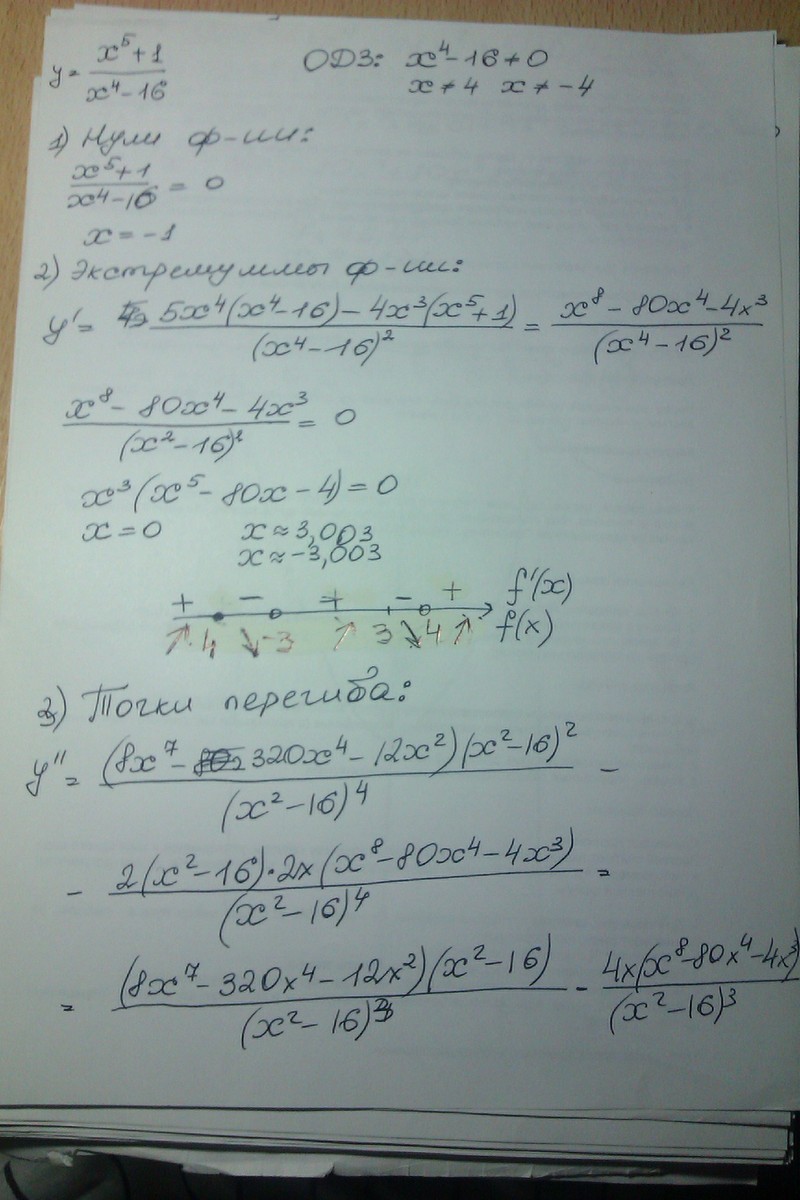 y = (x⁵+1)/(x⁴-16) ОДЗ: x⁴-16≠0
x≠4 x≠-4
1) Нули ф-ии:
(x⁵+1)/(x⁴-16) = 0
x = -1
2) Экстремуммы ф-ии:
y' = (5x⁴(x⁴-16) - 4x³(x⁵+1))/(x⁴-16)² = (x⁸ - 80x⁴ - 4x³)/(x⁴-16)²
(x⁸ - 80x⁴ - 4x³)/(x²-16)² = 0
x³(x⁵ - 80x - 4) = 0
x = 0 x ≈ 3,003
x ≈ -3,003
+ - + - + f'(x)
↗ 4 ↘ -3 ↗ 3 ↘ 4 ↗ f(x)
3) Точки перегиба:
y'' = ((8x⁷ - 320x⁴ - 12x²)(x²-16)²)/(x²-16)⁴ -
- (2(x²-16)·2x(x⁸ - 80x⁴ - 4x³))/(x²-16)⁴ =
= ((8x⁷ - 320x⁴ - 12x²)(x²-16))/(x²-16)³ - (4x(x⁸ - 80x⁴ - 4x³))/(x²-16)³